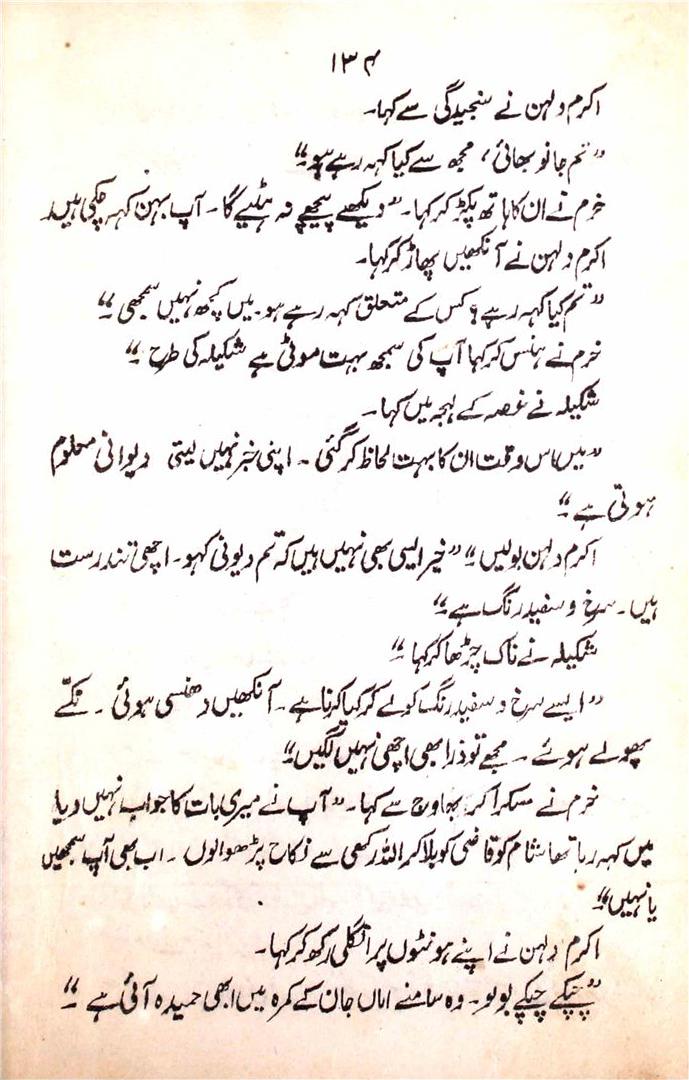 ۱۳۴
اکرم دلہن نے سنجیدگی سے کہا۔
"تم جانو بھائی، مجھ سے کیا کہہ رہے ہو"
خرم نے ان کا ہاتھ پکڑ کر کہا۔ "دیکھے پیچھے نہ ہٹیے گا۔ آپ بہن کہہ چکی ہیں۔
اکرم دلہن نے آنکھیں پھاڑ کر کہا۔
"تم کیا کہہ رہے ؟ کس کے متعلق کہہ رہے ہو۔ میں کچھ نہیں سمجھی"
خرم نے ہنس کر کہا آپ کی سمجھ بہت موٹی ہے شکیلہ کی طرح"
شکیلہ نے غصہ کے لہجہ میں کہا۔
"میں اس وقت ان کا بہت لحاظ کر گئی ۔ اپنی خبر نہیں لیتی دیوانی معلوم
ہوتی ہے"
اکرم دلہن بولیں" "خیر ایسی بھی نہیں ہیں کہ تم دیونی کہو۔ اچھی تندرست
ہیں۔ سرخ و سفید رنگ ہے"
شکیلہ نے ناک چڑھا کر کہا"
"ایسے سرخ و سفید رنگ کو لے کر کیا کرنا ہے ۔ آنکھیں دھنسی ہوئی ۔ کلّے
پھولے ہوئے ۔ مجھے تو ذرا بھی اچھی نہیں لگیں"
خرم نے مسکرا کر بھاوج سے کہا۔ "آپ نے میری بات کا جواب نہیں دیا
میں کہہ رہا تھا شام کو قاضی کو بلا کر اللہ رکھی سے نکاح پڑھوالوں ۔ اب بھی آپ سمجھیں
یا نہیں"
اکرم دلہن نے اپنے ہونٹوں پر انگلی رکھ کر کہا۔
"چپکے چپکے بولو۔ وہ سامنے اماں جان کے کمرہ میں ابھی حمیدہ آئی ہے"